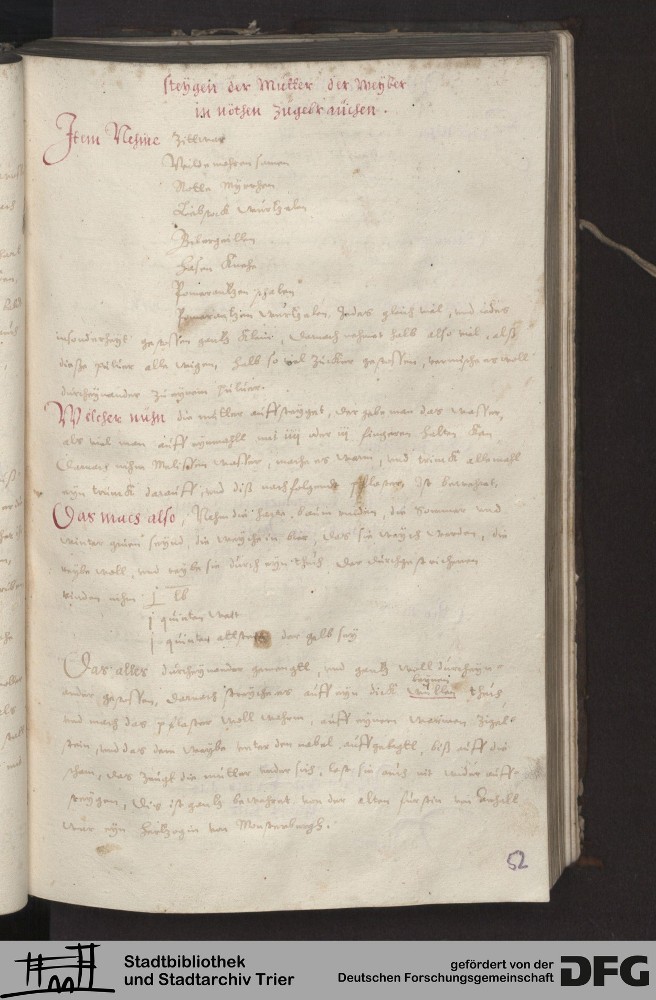 steÿgen der Mutter der Weÿber
in nöthen zugebrauchen.
Item Nehme Zittwar
Wilde mohren samen
Rotte Mÿrrhen
Liebstock wurtzelen
Bibergeillen
Hasen
Pomerantzen schalen
Pomerantzen wurtzelen, Jedes gleich viel, und jedes
insonderheyt gestossen gantz klein, Darnach nehmet halb also viel, alß
diesse pulver alle wigen, halb so viel Zücker gestossen, vermische es woll
durcheynander zu eynem pulver.
Welcher nuhn die mutter auffsteyget, Der gebe man das wasser,
als viel man auff eynmahll mit iiij oder iij fingeren halten kan,
Darnach nihm Melissen wasser, mache es warm, und trinck allemahll
eyn trünck darauff, und diß nachfolgende pflaster ist bewehret.
Das mues also, Nehm die baum rinden, die Sommer und
winter gruen seynd, die weyche in bier, das sie weych werden, die
reybe woll, und treybe sie durch eyn thuch, Der durchgestrichenen
rinden nihm j lb
j quinten
j quinten der gelb sey
Das alles durcheynander gemenget, und gantz woll durcheyn-
ander gestossen, Darnach streyche es auff eyn dick wüllen thuch,
reynen
und mach das pflaster woll wahrm, auff eynem warmen Ziegel-
stein, und das dem weybe unter den nabel auffgelegtt, biß auff die
scham, das zeugt die mutter under sich, lest sie auch nit wider auff-
steygen, Diß ist gantz bewehret von der alten fürstin von Anhalt
war eyn Hertzogin von Monsterbergk.
52
Stadtbibliothek
und Stadtarchiv Trier
gefördert von der
Deutschen Forschungsgemeinschaft
DFG